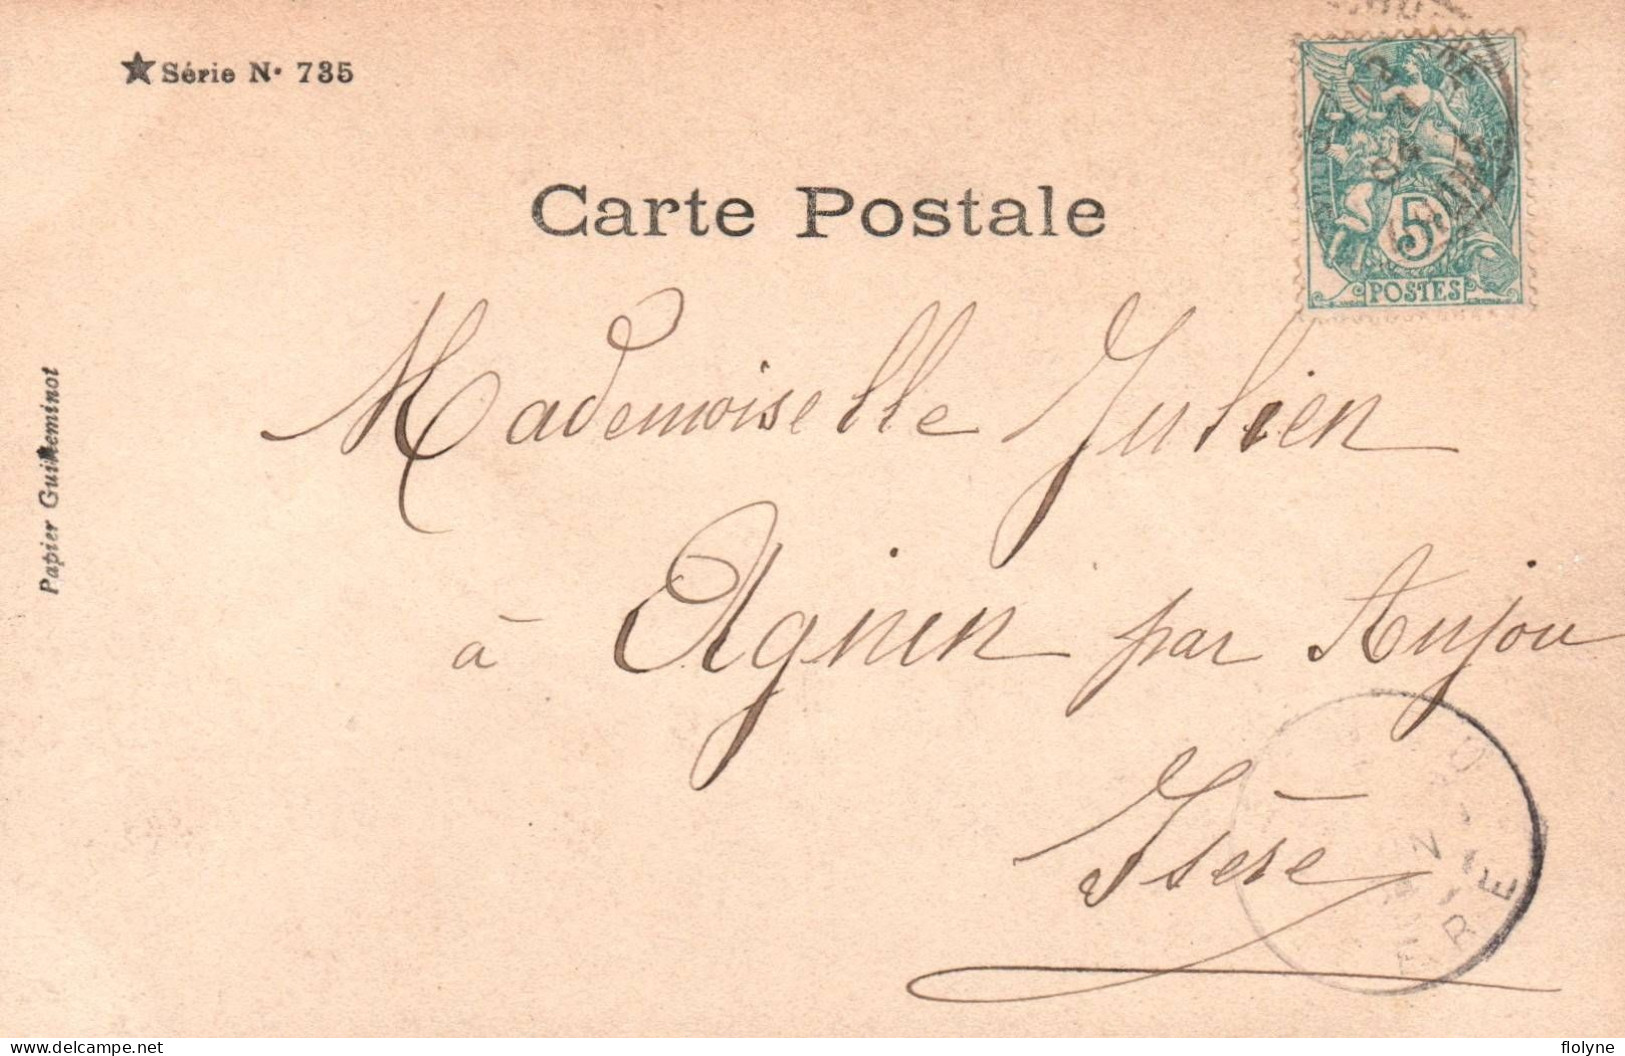 ★ Série N° 735
Carte Postale
5
POSTES
04
Papier Guilleminot
Mademoiselle Julien
à Agnin par Anjou
Isère
delcampe.net
flolyne